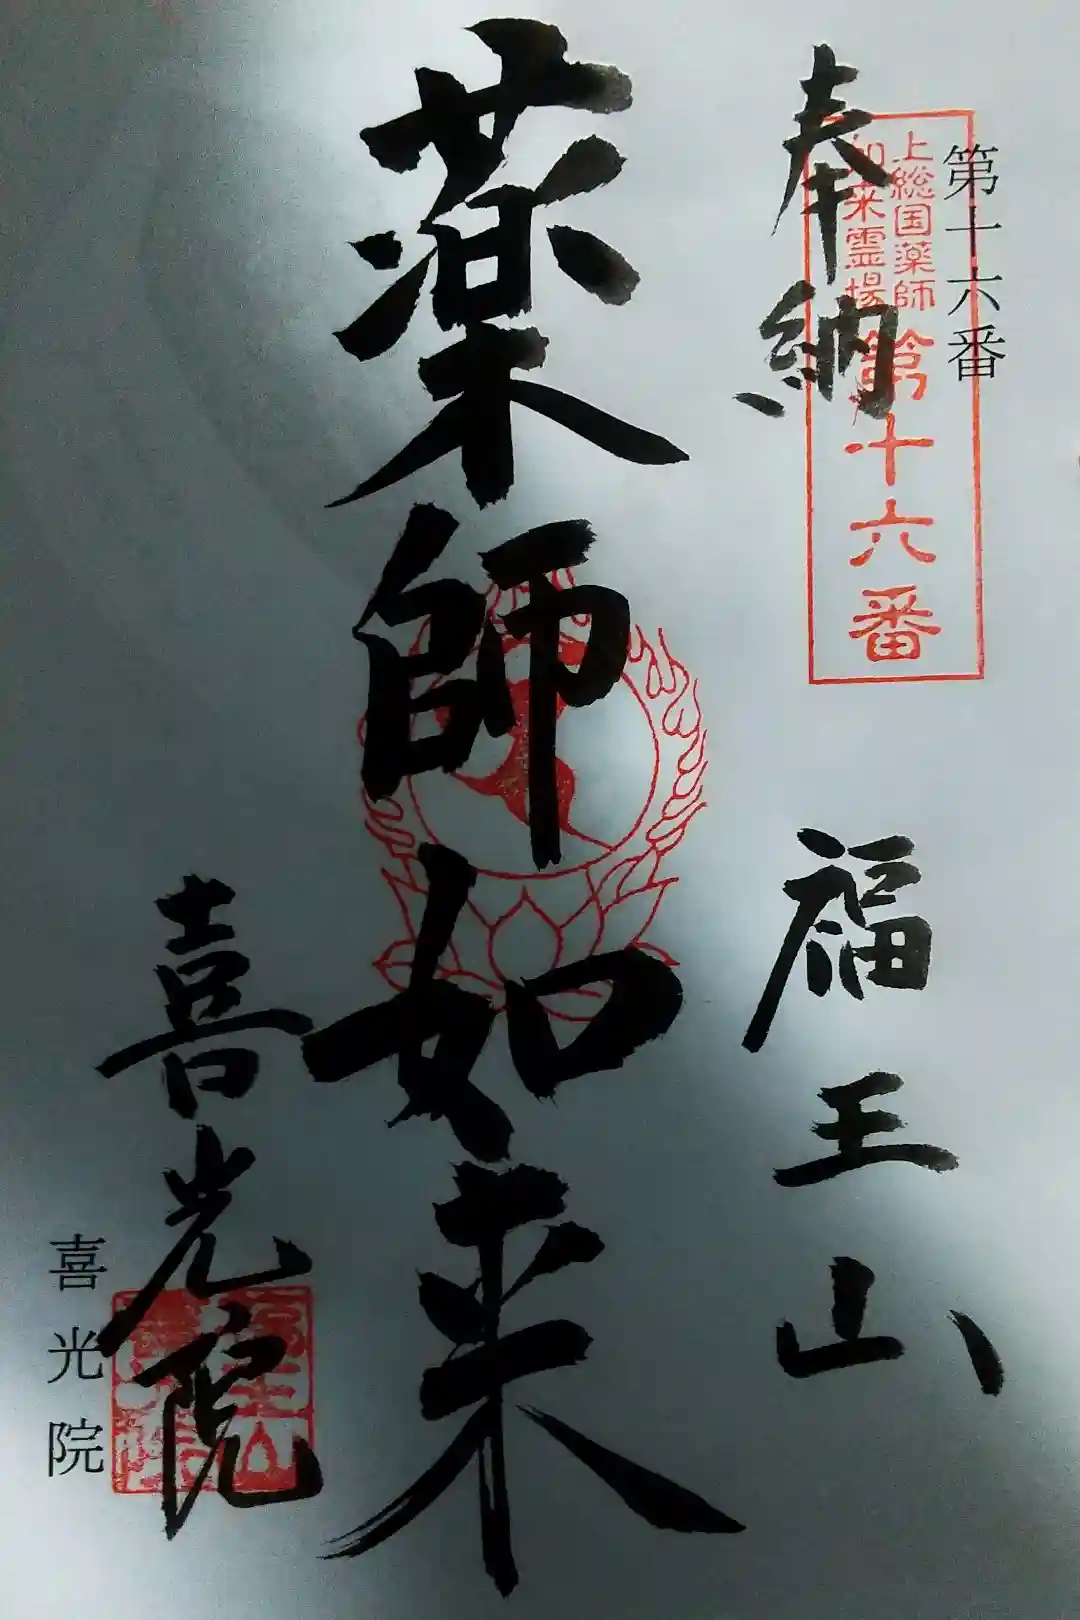 第十六番
奉納
上総国薬師
如来霊場
第十六番
福王山
薬師如来
喜光院
喜光院